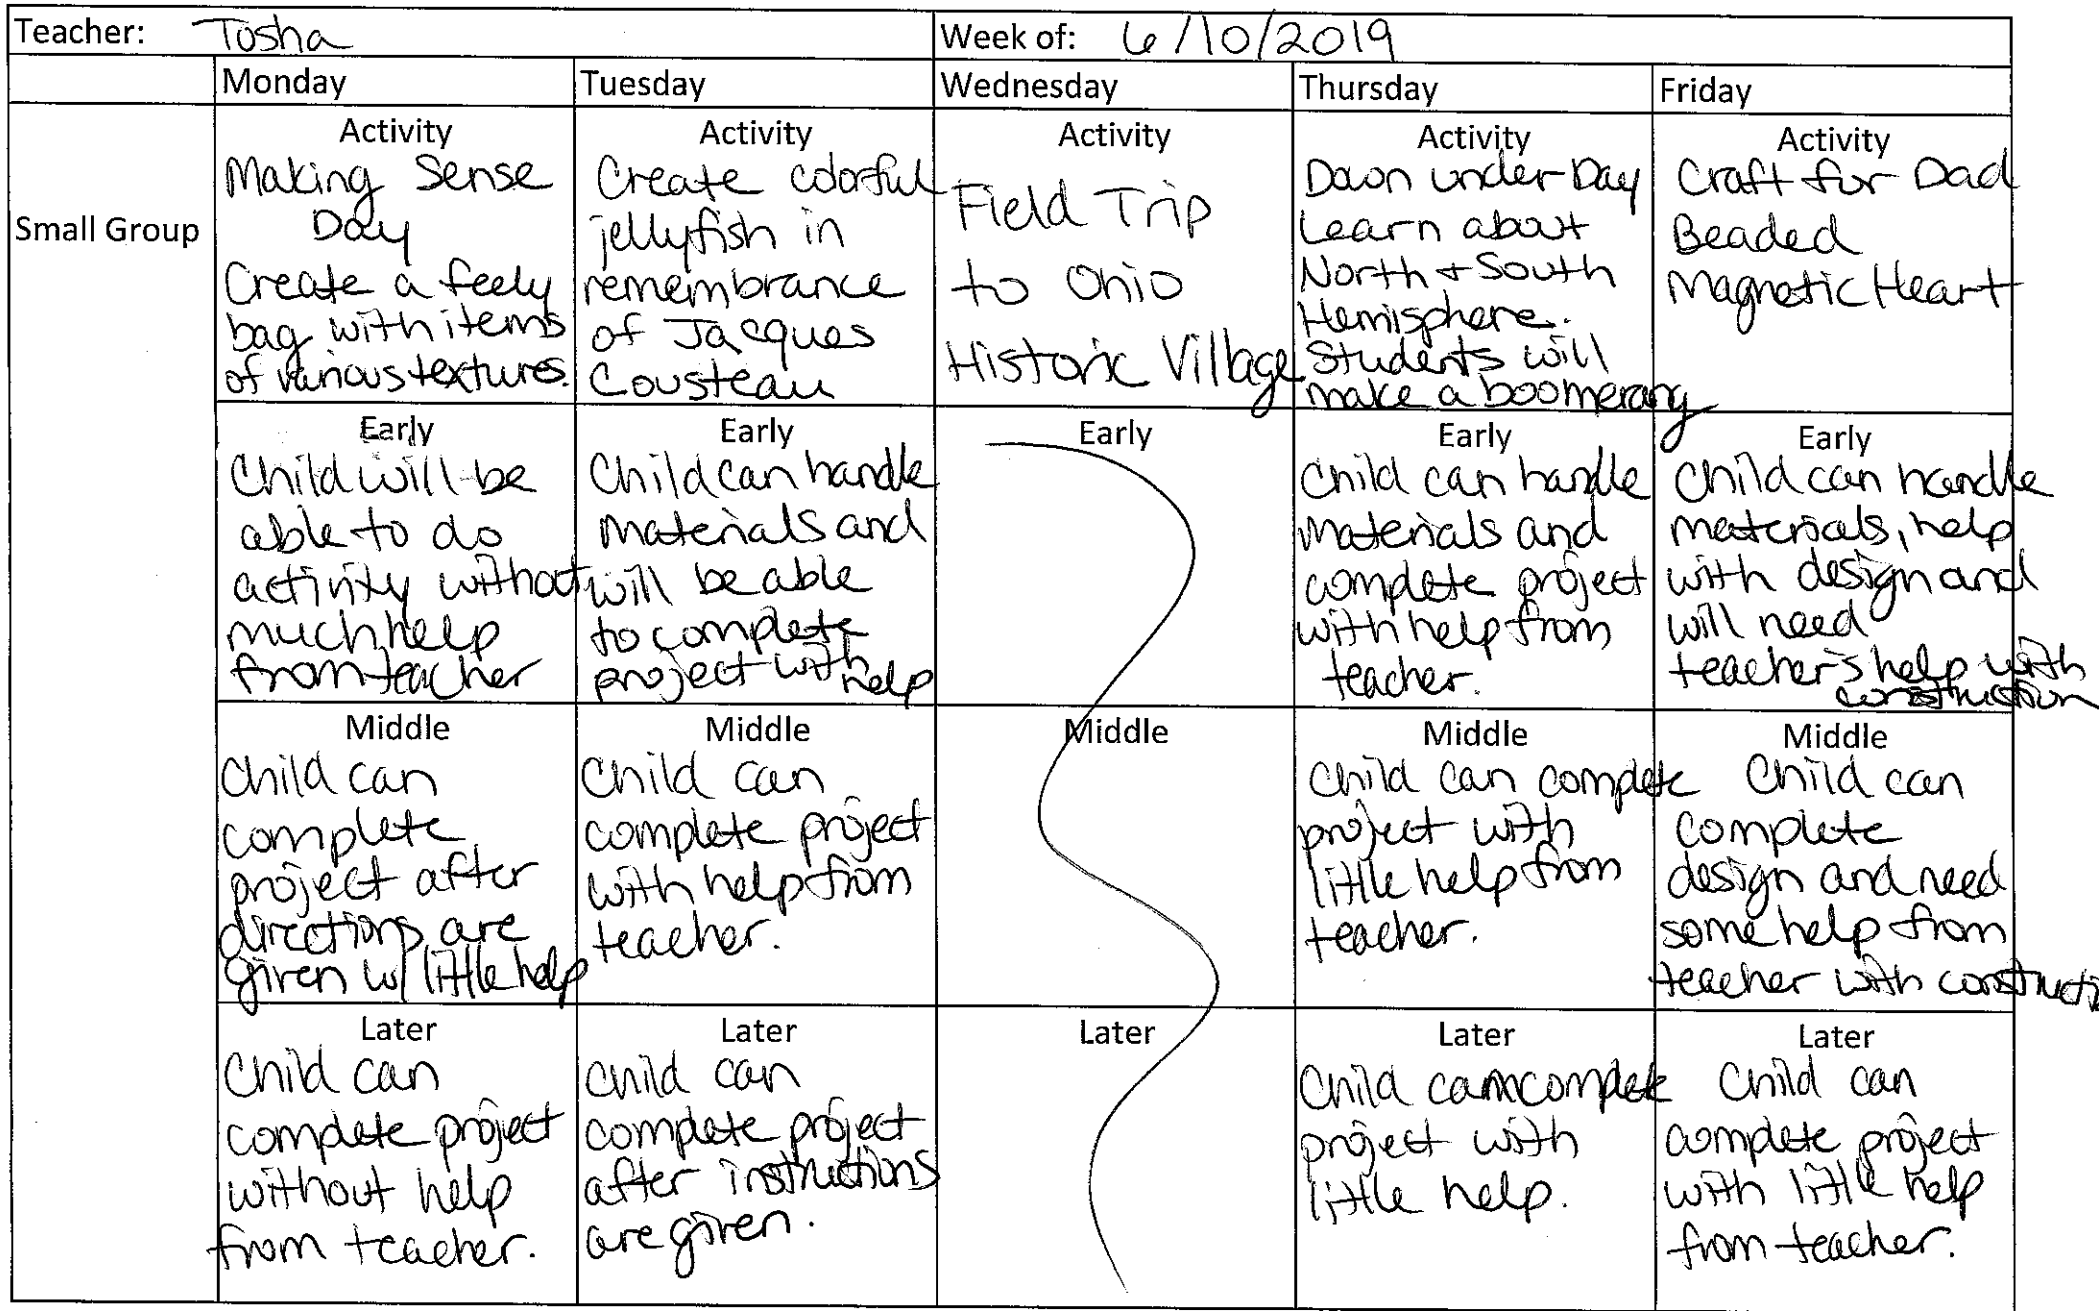 Teacher: Tosha
Week of: 6/10/2019
Monday
Tuesday
Wednesday
Thursday
Friday
Small Group
Activity
Making Sense
Day
Create a feely
bag with items
of various textures.
Activity
Create colorful
jellyfish in
remembrance
of Jacques
Cousteau
Activity
Field Trip
to Ohio
Historic Village
Activity
Down under Day
Learn about
North + South
Hemisphere.
Students will
make a boomerang
Activity
Craft for Dad
Beaded
Magnetic Heart
Early
Child will be
able to do
activity without
much help
from teacher
Early
Child can handle
materials and
will be able
to complete
project with
help
Early
Early
Child can handle
materials and
complete project
with help from
teacher.
Early
Child can handle
materials, help
with design and
will need
teacher's help with
construction
Middle
Child can
complete
project after
directions are
given w/ little help
Middle
Child can
complete project
with help from
teacher.
Middle
Middle
Child can complete
project with
little help from
teacher.
Middle
Child can
complete
design and need
some help from
teacher with constructi
Later
Child can
complete project
without help
from teacher.
Later
Child can
complete project
after instructions
are given.
Later
Later
Child can complete
project with
little help.
Later
Child can
complete project
with little help
from teacher.